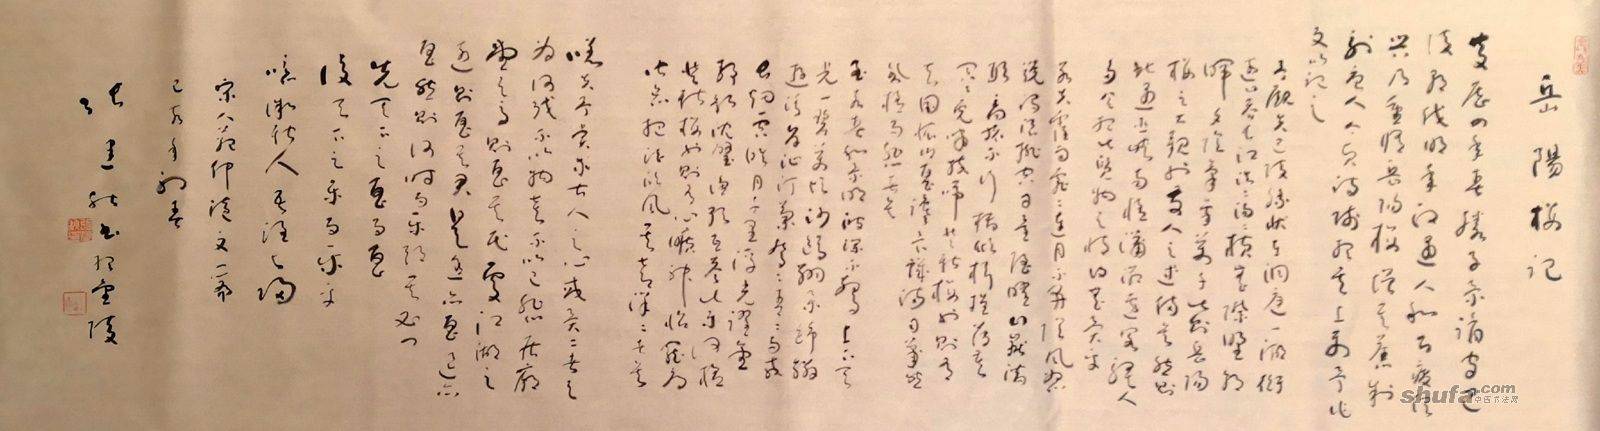 岳陽樓記
慶歷四年春滕子京謫守巴
陵郡越明年政通人和百廢俱
興乃重修岳陽樓增其舊制
刻唐人今人詩賦於其上屬予作
文以記之
予觀夫巴陵勝狀在洞庭一湖銜
遠山吞長江浩浩湯湯橫無際涯朝
暉夕陰氣象萬千此則岳陽
樓之大觀也前人之述備矣然則
北通巫峽南極瀟湘遷客騷人
多會於此覽物之情得無異乎
若夫霪雨霏霏連月不開陰風怒
號濁浪排空日星隱曜山嶽潛
形商旅不行檣傾楫摧薄暮
冥冥虎嘯猿啼登斯樓也則有
去國懷鄉憂讒畏譏滿目蕭然
感極而悲者矣
至若春和景明波瀾不驚上下天
光一碧萬頃沙鷗翔集錦鱗
游泳岸芷汀蘭郁郁青青而或
長煙一空皓月千里浮光躍金
靜影沈璧漁歌互答此樂何極
登斯樓也則有心曠神怡寵辱
偕忘把酒臨風其喜洋洋者矣
嗟夫予嘗求古仁人之心或異二者之
為何哉不以物喜不以己悲居廟
堂之高則憂其民處江湖之
遠則憂其君是進亦憂退亦
憂然則何時而樂耶其必曰
先天下之憂而憂
後天下之樂而樂乎
噫微斯人吾誰與歸
宋人范仲淹文一篇
己亥年初春
張建書於金陵
shufa.com
中国书法网